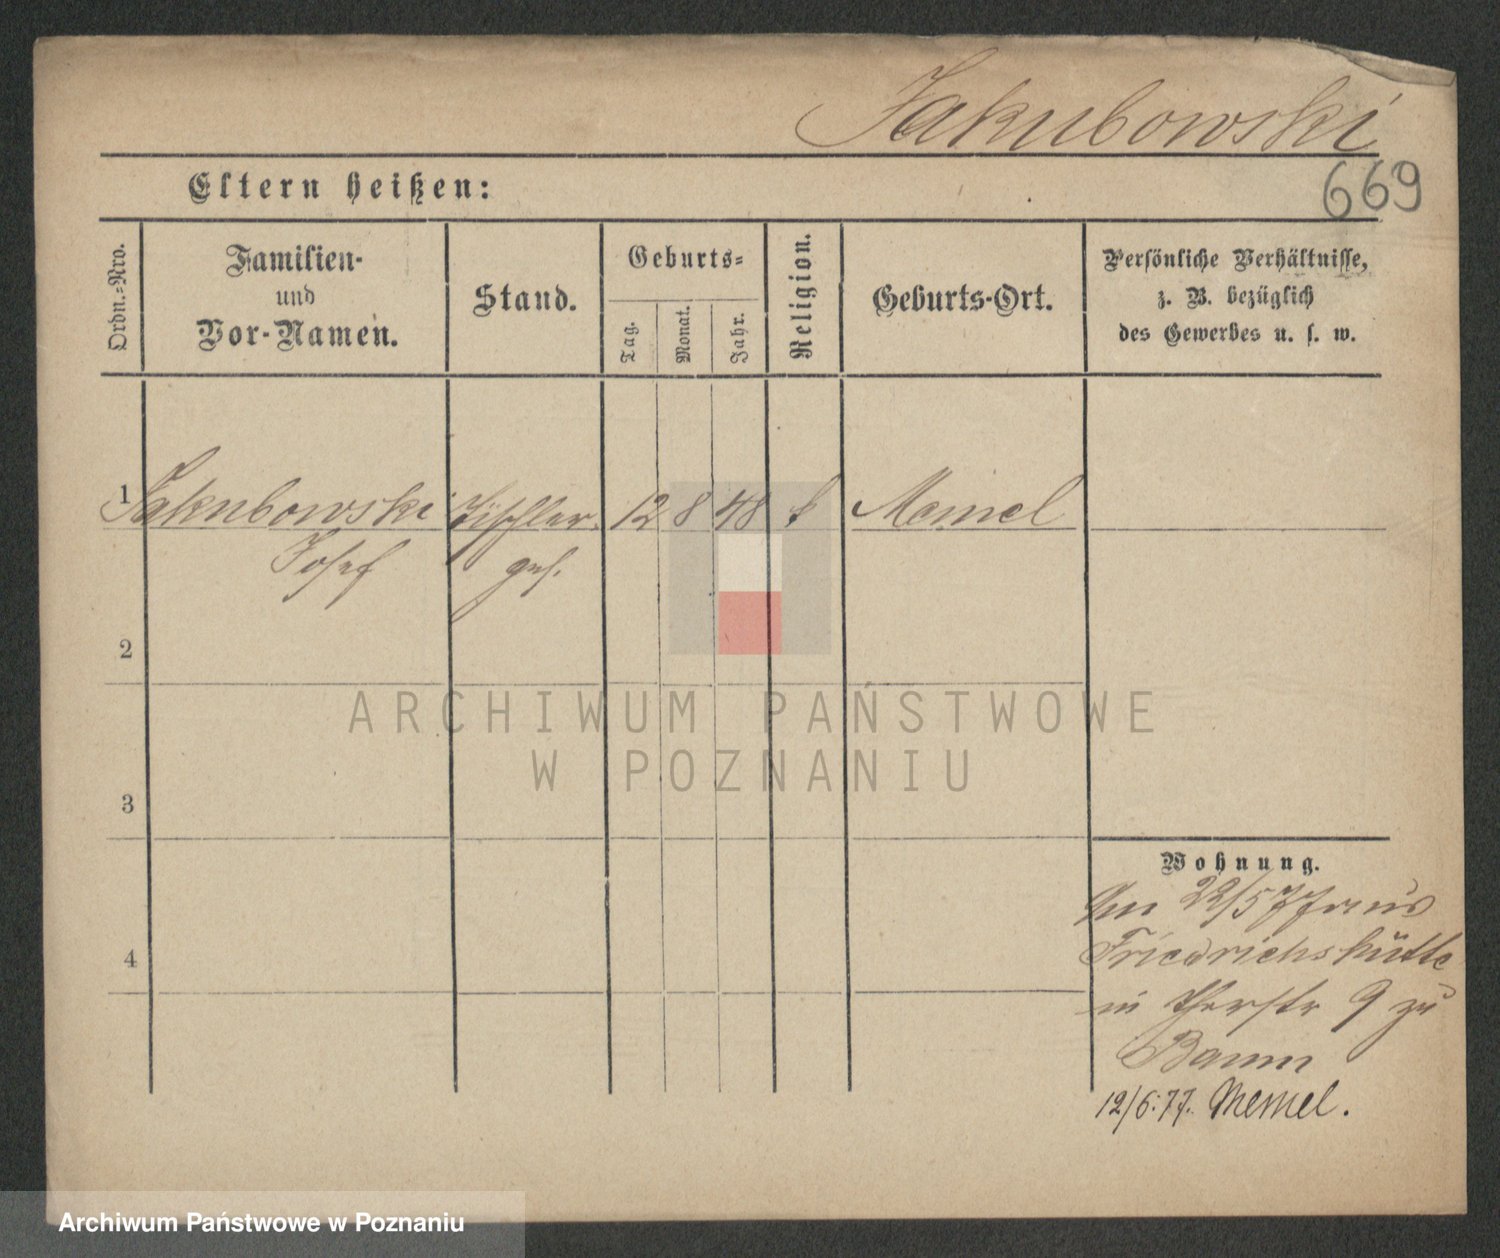 Jakubowski
669
Eltern heißen:
Ordn.-Nro.
Familien-
und
Vor-Namen.
Stand.
Geburts-
Tag.
Monat.
Jahr.
Religion.
Geburts-Ort.
Persönliche Verhältnisse,
z. B. bezüglich
des Gewerbes u. s. w.
1 Jakubowski Tischler- 12 8 48 k Memel
Josef ges.
2
3
4
ARCHIWUM PAŃSTWOWE
W POZNANIU
Wohnung.
Am 22/5 77 aus
Friedrichshütte
in 9 zu
Baum
12/6.77. Memel.
Archiwum Państwowe w Poznaniu